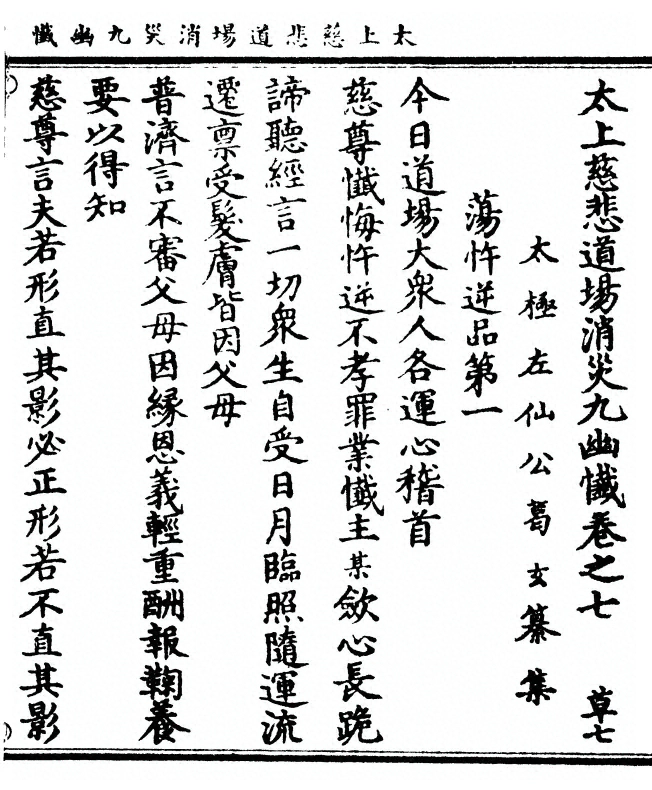 太上慈悲道場消災九幽懺
太上慈悲道場消災九幽懺卷之七 草七
太極左仙公葛玄纂集
蕩忤逆品第一
今日道場大衆人各運心稽首
慈尊懺悔忤逆不孝罪業懺主某歛心長跪
諦聽經言一切衆生自受日月臨照隨運流
遷禀受髮膚皆因父母
普濟言不審父母因緣恩義輕重酬報鞠養
要以得知
慈尊言夫若形直其影必正形若不直其影